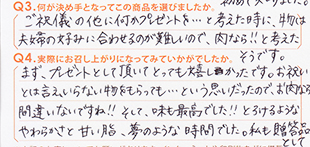 Q3.何が決め手となってこの商品を選びましたか。
ご祝儀の他に何かプレゼントを…と考えた時に、物は
夫婦の好みに合わせるのが難しいので、肉なら!!と考えた
そうです。
Q4.実際にお召し上がりになってみていかがでしたか。
まず、プレゼントとして頂いてとっても嬉しかったです。お祝い
とは言え、いらない物をもらっても…という思いだったので、お肉なら
間違いないですね!!そして、味も最高でした!!とろけるような
やわらかさと甘い脂、夢のような時間でした。私も贈答品
として